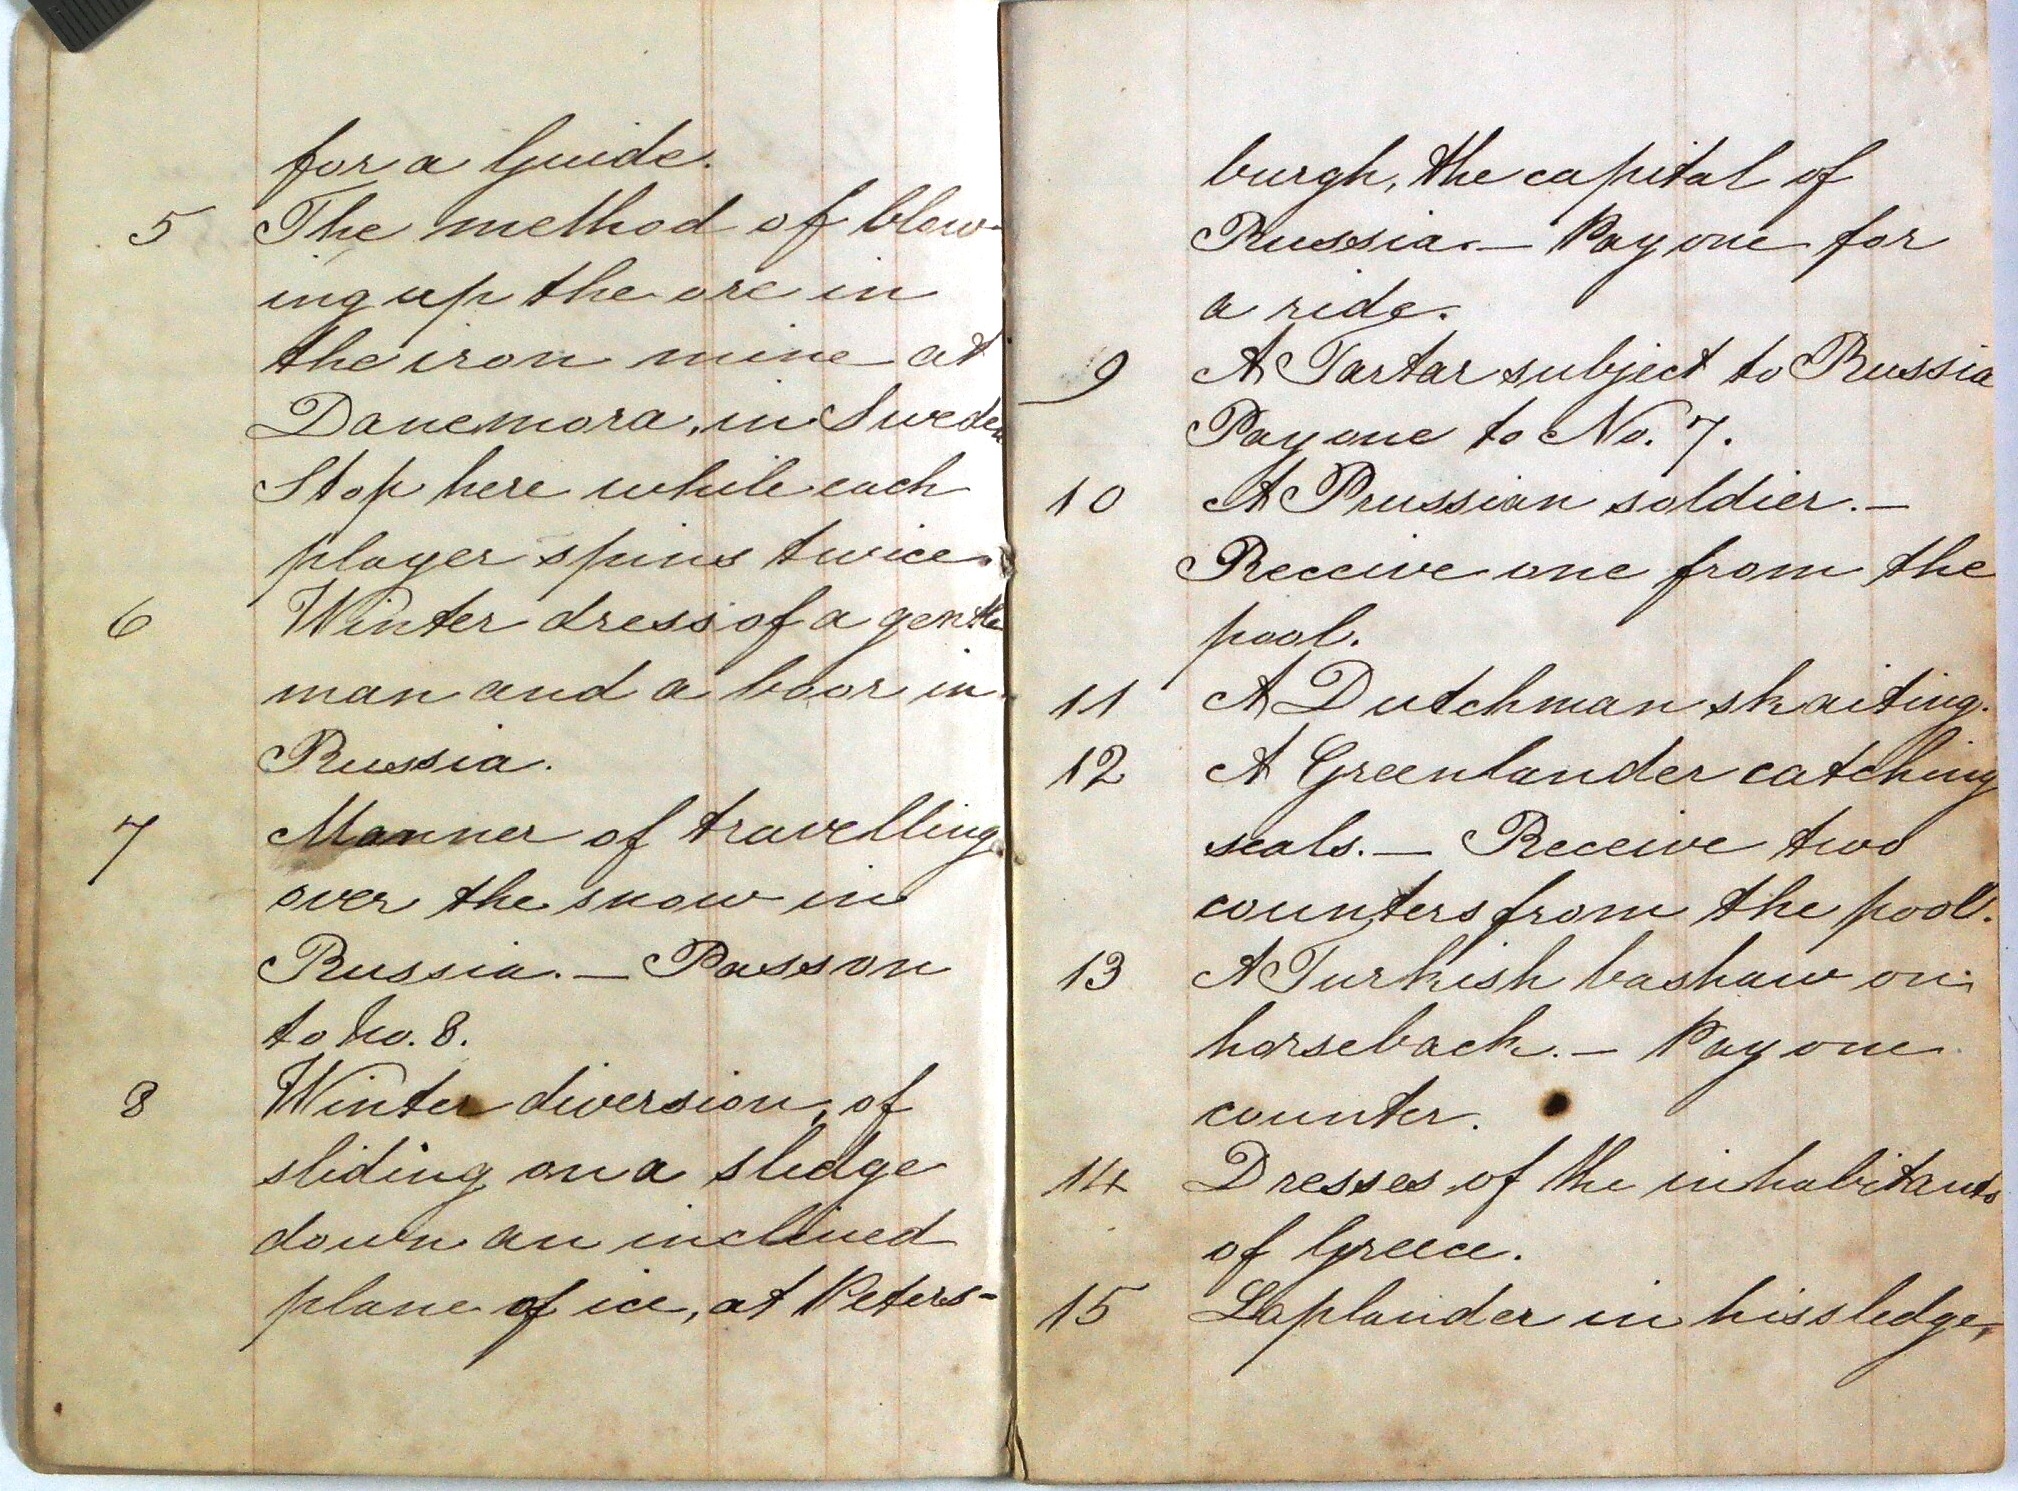 for a Guide.
5 The method of blow-
ing up the ore in
the iron mine at
Danemora, in Sweden
Stop here while each
player spins twice.
6 Winter dress of a gentle
man and a boor in
Russia.
7 Manner of travelling
over the snow in
Russia. — Pass on
to No. 8.
8 Winter diversion, of
sliding on a sledge
down an inclined
plane of ice, at Peters-
burgh, the capital of
Russia. — Pay one for
a ride.
9 A Tartar subject to Russia
Pay one to No. 7.
10 A Prussian soldier. —
Receive one from the
pool.
11 A Dutchman skaiting.
12 A Greenlander catching
seals. — Receive two
counters from the pool.
13 A Turkish bashaw on
horseback. — Pay one
counter.
14 Dresses of the inhabitants
of Greece.
15 Laplander in his sledge,